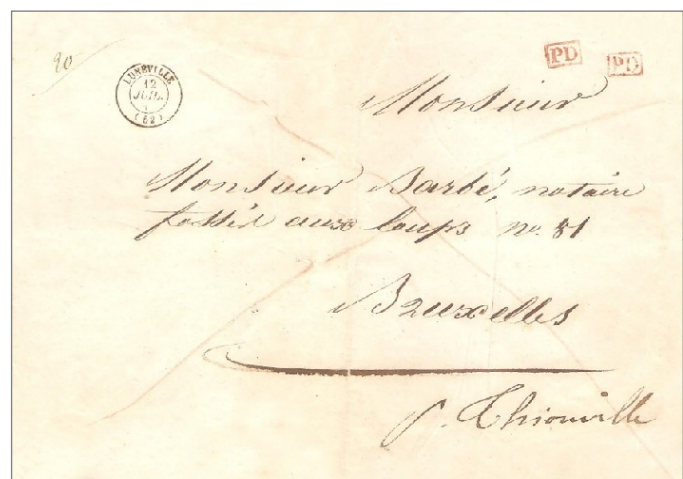 20
LUNÉVILLE
12
JUIL.
(52)
PD
PD
Monsieur
Monsieur Barbé, notaire
fossés aux loups no. 81
Bruxelles
p. Thionville